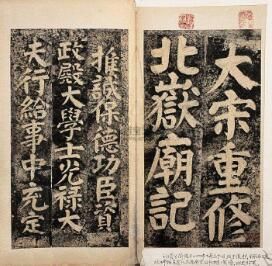 大宋重修
北嶽廟記
推誠保德功臣資
政殿大學士光禄大
夫行給事中充定